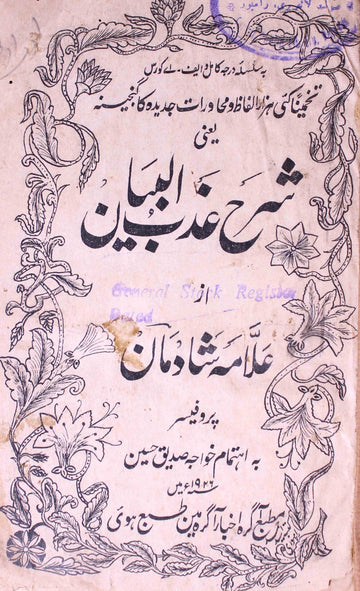 بہ سلسلہ درجہ کامل و ایف۔اے کورس
تخمیناً کئی ہزار الفاظ و محاورات جدیدہ کا گنجینہ
یعنی
شرح عذب البیان
از
General Stock Register
Dated
علّامہ شادمان
پروفیسر
بہ اہتمام خواجہ صدیق حسین
۱۹۲۶ء میں
مطبع آگرہ اخبار آگرہ مین طبع ہوئی